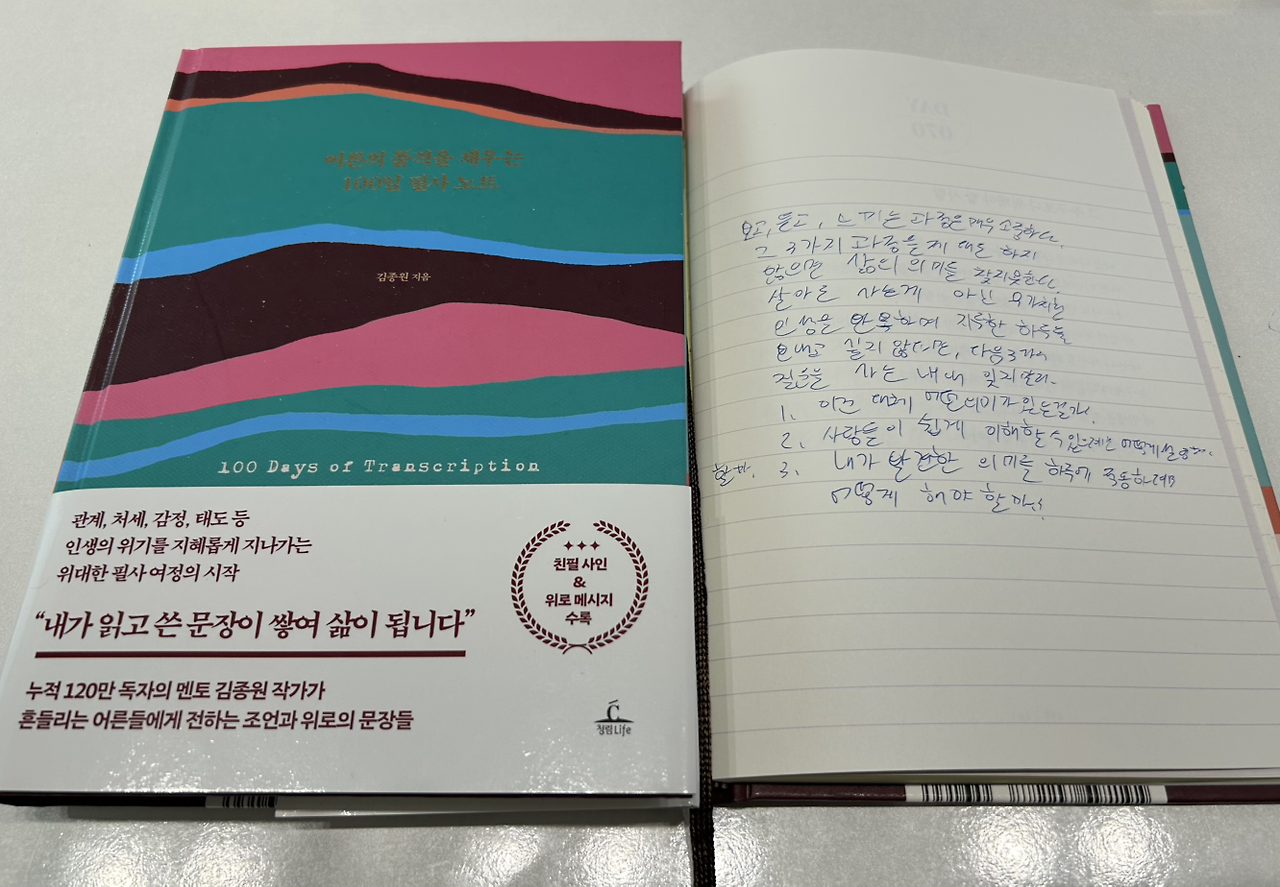 어른의 품격을 채우는
100일 필사 노트
김종원 지음
100 Days of Transcription
관계, 처세, 감정, 태도 등
인생의 위기를 지혜롭게 지나가는
위대한 필사 여정의 시작
“내가 읽고 쓴 문장이 쌓여 삶이 됩니다”
누적 120만 독자의 멘토 김종원 작가가
흔들리는 어른들에게 전하는 조언과 위로의 문장들
친필 사인
&
위로 메시지
수록
청림Life
DAY
070
보고, 듣고, 느끼는 과정은 매우 소중하다.
그 3가지 과정을 제대로 하지
않으면 삶의 의미를 찾지못한다.
살아도 사는게 아닌
인생을 반복하며 지루한 하루를
보내고 싶지 않으면, 다음 3가지
질문을 사는 내내 잊지말라.
1. 이건 대체 어떤 의미가 있는걸까?
2. 사람들이 쉽게 이해할 수 있으려면 어떻게 설명
할까.
3. 내가 발견한 의미를 하루에 적용하려면
어떻게 해야 할까?